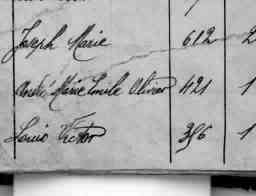 Joseph Marie 612 2
André Marie Emile Olivier 421 1
Louis Victor 396 1